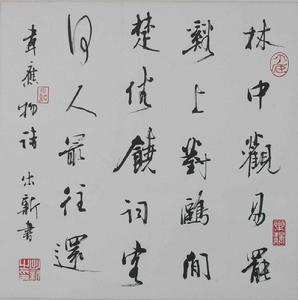 林中觀易罷
谿上對鷗閒
楚俗饒詞客
何人最往還
韋應物詩 新書